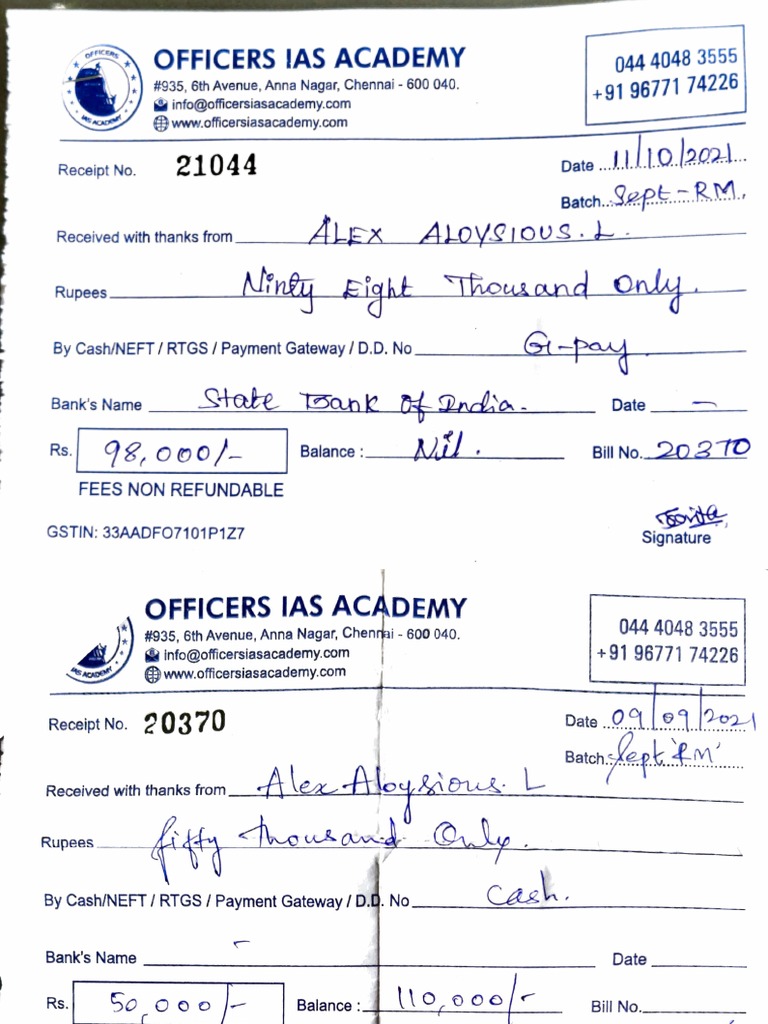 OFFICERS IAS ACADEMY
#935, 6th Avenue, Anna Nagar, Chennai - 600 040.
info@officersiasacademy.com
www.officersiasacademy.com
044 4048 3555
+91 96771 74226
OFFICERS
IAS ACADEMY
Receipt No. 21044
Date 11/10/2021
Batch Sept-RM.
Received with thanks from ALEX ALOYSIOUS. L.
Rupees Ninty Eight Thousand Only.
By Cash/NEFT / RTGS / Payment Gateway / D.D. No G-pay.
Bank's Name State Bank Of India. Date —
Rs. 98,000/- Balance : Nil. Bill No. 20370
FEES NON REFUNDABLE
GSTIN: 33AADFO7101P1Z7
Signature
OFFICERS IAS ACADEMY
#935, 6th Avenue, Anna Nagar, Chennai - 600 040.
info@officersiasacademy.com
www.officersiasacademy.com
044 4048 3555
+91 96771 74226
IAS ACADEMY
Receipt No. 20370
Date 09/09/2021
Batch: Sept 'RM'
Received with thanks from Alex Aloysious. L
Rupees fifty thousand Only.
By Cash/NEFT / RTGS / Payment Gateway / D.D. No Cash.
Bank's Name - Date
Rs. 50,000/- Balance : 110,000/- Bill No.